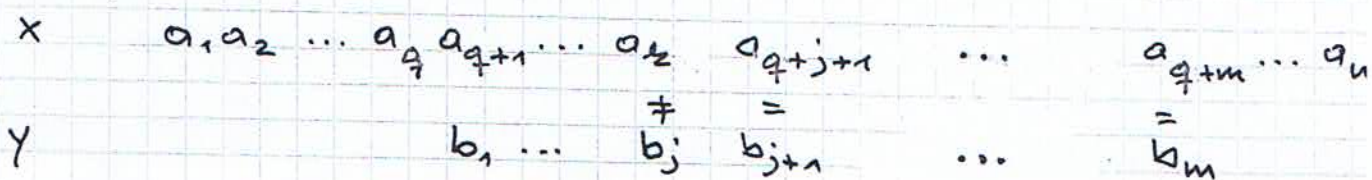 X a₁ a₂ ... a_q a_{q+1} ... a_k a_{q+j+1} ... a_{q+m} ... a_n
≠ = =
Y b₁ ... b_j b_{j+1} ... b_m